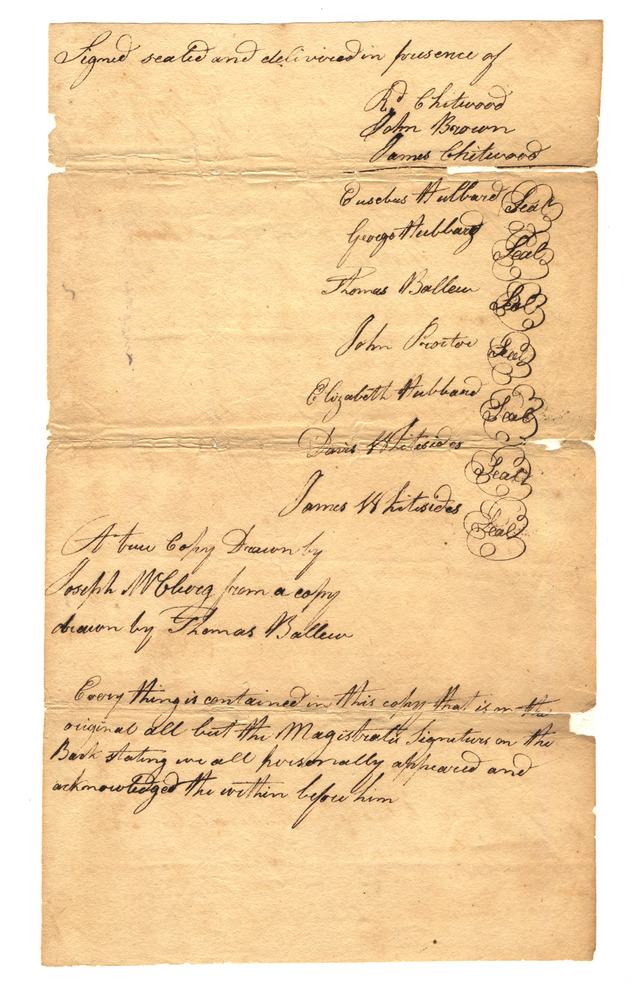 Signed sealed and delivered in presence of
Rd. Chitwood
John Brown
James Chitwood
Eusebus Hubbard Seal
George Hubbard Seal
Thomas Ballew Seal
John Proctor Seal
Elizabeth Hubbard Seal
Davis Whitesides Seal
James Whitesides Seal
A true Copy Drawn by
Joseph from a copy
drawn by Thomas Ballew
Every thing is contained in this copy that is in the
original all but the Magistrate's Signature on the
Back stating we all personally appeared and
acknowledged the within before him